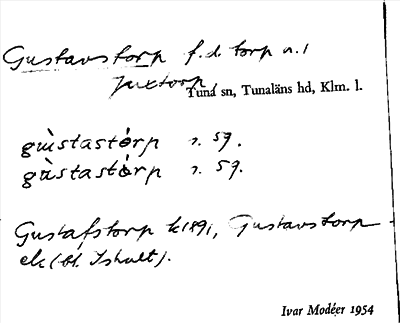 Gustavstorp f.d. torp n. 1
Juxtorp,
Tuna sn, Tunaläns hd, Klm. l.
gùstastórp 1. 57.
gùstastórp 1. 57.
Gustafstorp k 1891, Gustavstorp
ek (bl. Ishult).
Ivar Modéer 1954